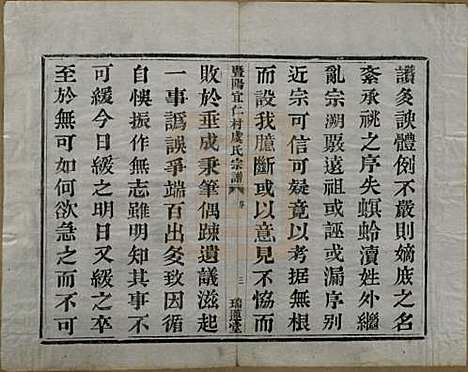 譜多諛體例不嚴則嫡庶之名
紊承祧之序失螟蛉瀆姓外繼
亂宗溯嚴遠祖或誣或漏序別
近宗可信可疑竟以考据無根
而設我臆斷或以意見不恊而
暨陽宜仁村虞氏宗譜 序 三 瑞蓮堂
敗於垂成秉筆偶踈遺議滋起
一事譌誤爭端百出夋致因循
自悞振作無志雖明知其事不
可緩今日緩之明日又緩之卒
至於無可如何欲急之而不可